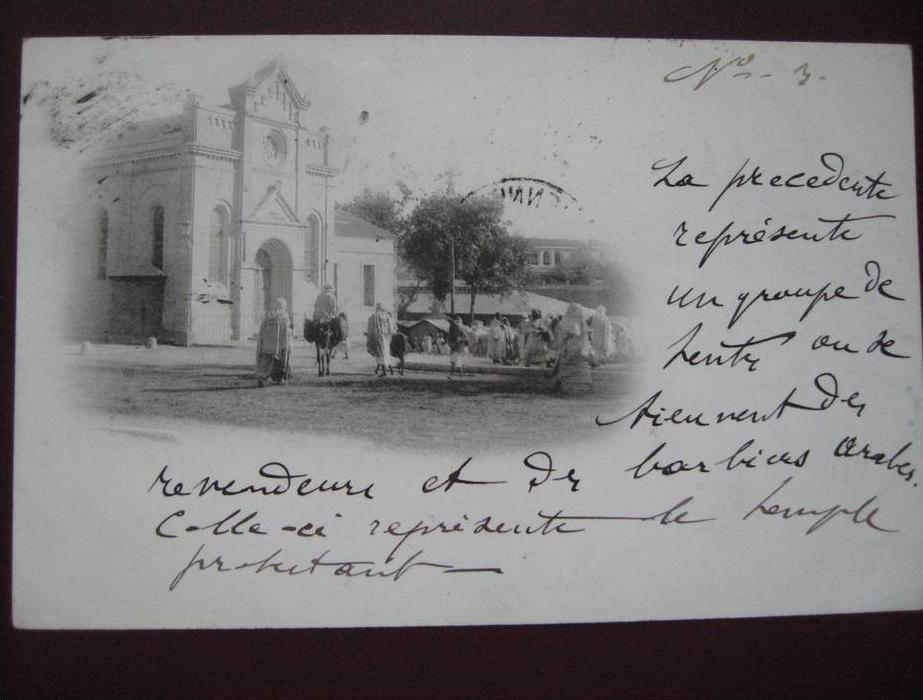 No. 3.
La precedente
représente
un groupe de
tentes ou se
tiennent des
revendeurs et des barbiers arabes.
Celle-ci représente le temple
protestant